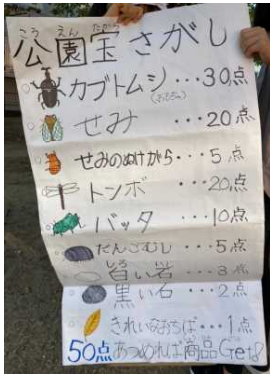 こうえんたから
公園宝さがし
カブトムシ・・・30点
せみ・・・20点
せみのぬけがら・・・5点
トンボ・・・20点
バッタ・・・10点
だんごむし・・・5点
しろ
白い岩・・・3点
黒い石・・・2点
きれいなおちば・・・1点
50点あつめれば商品Get!!